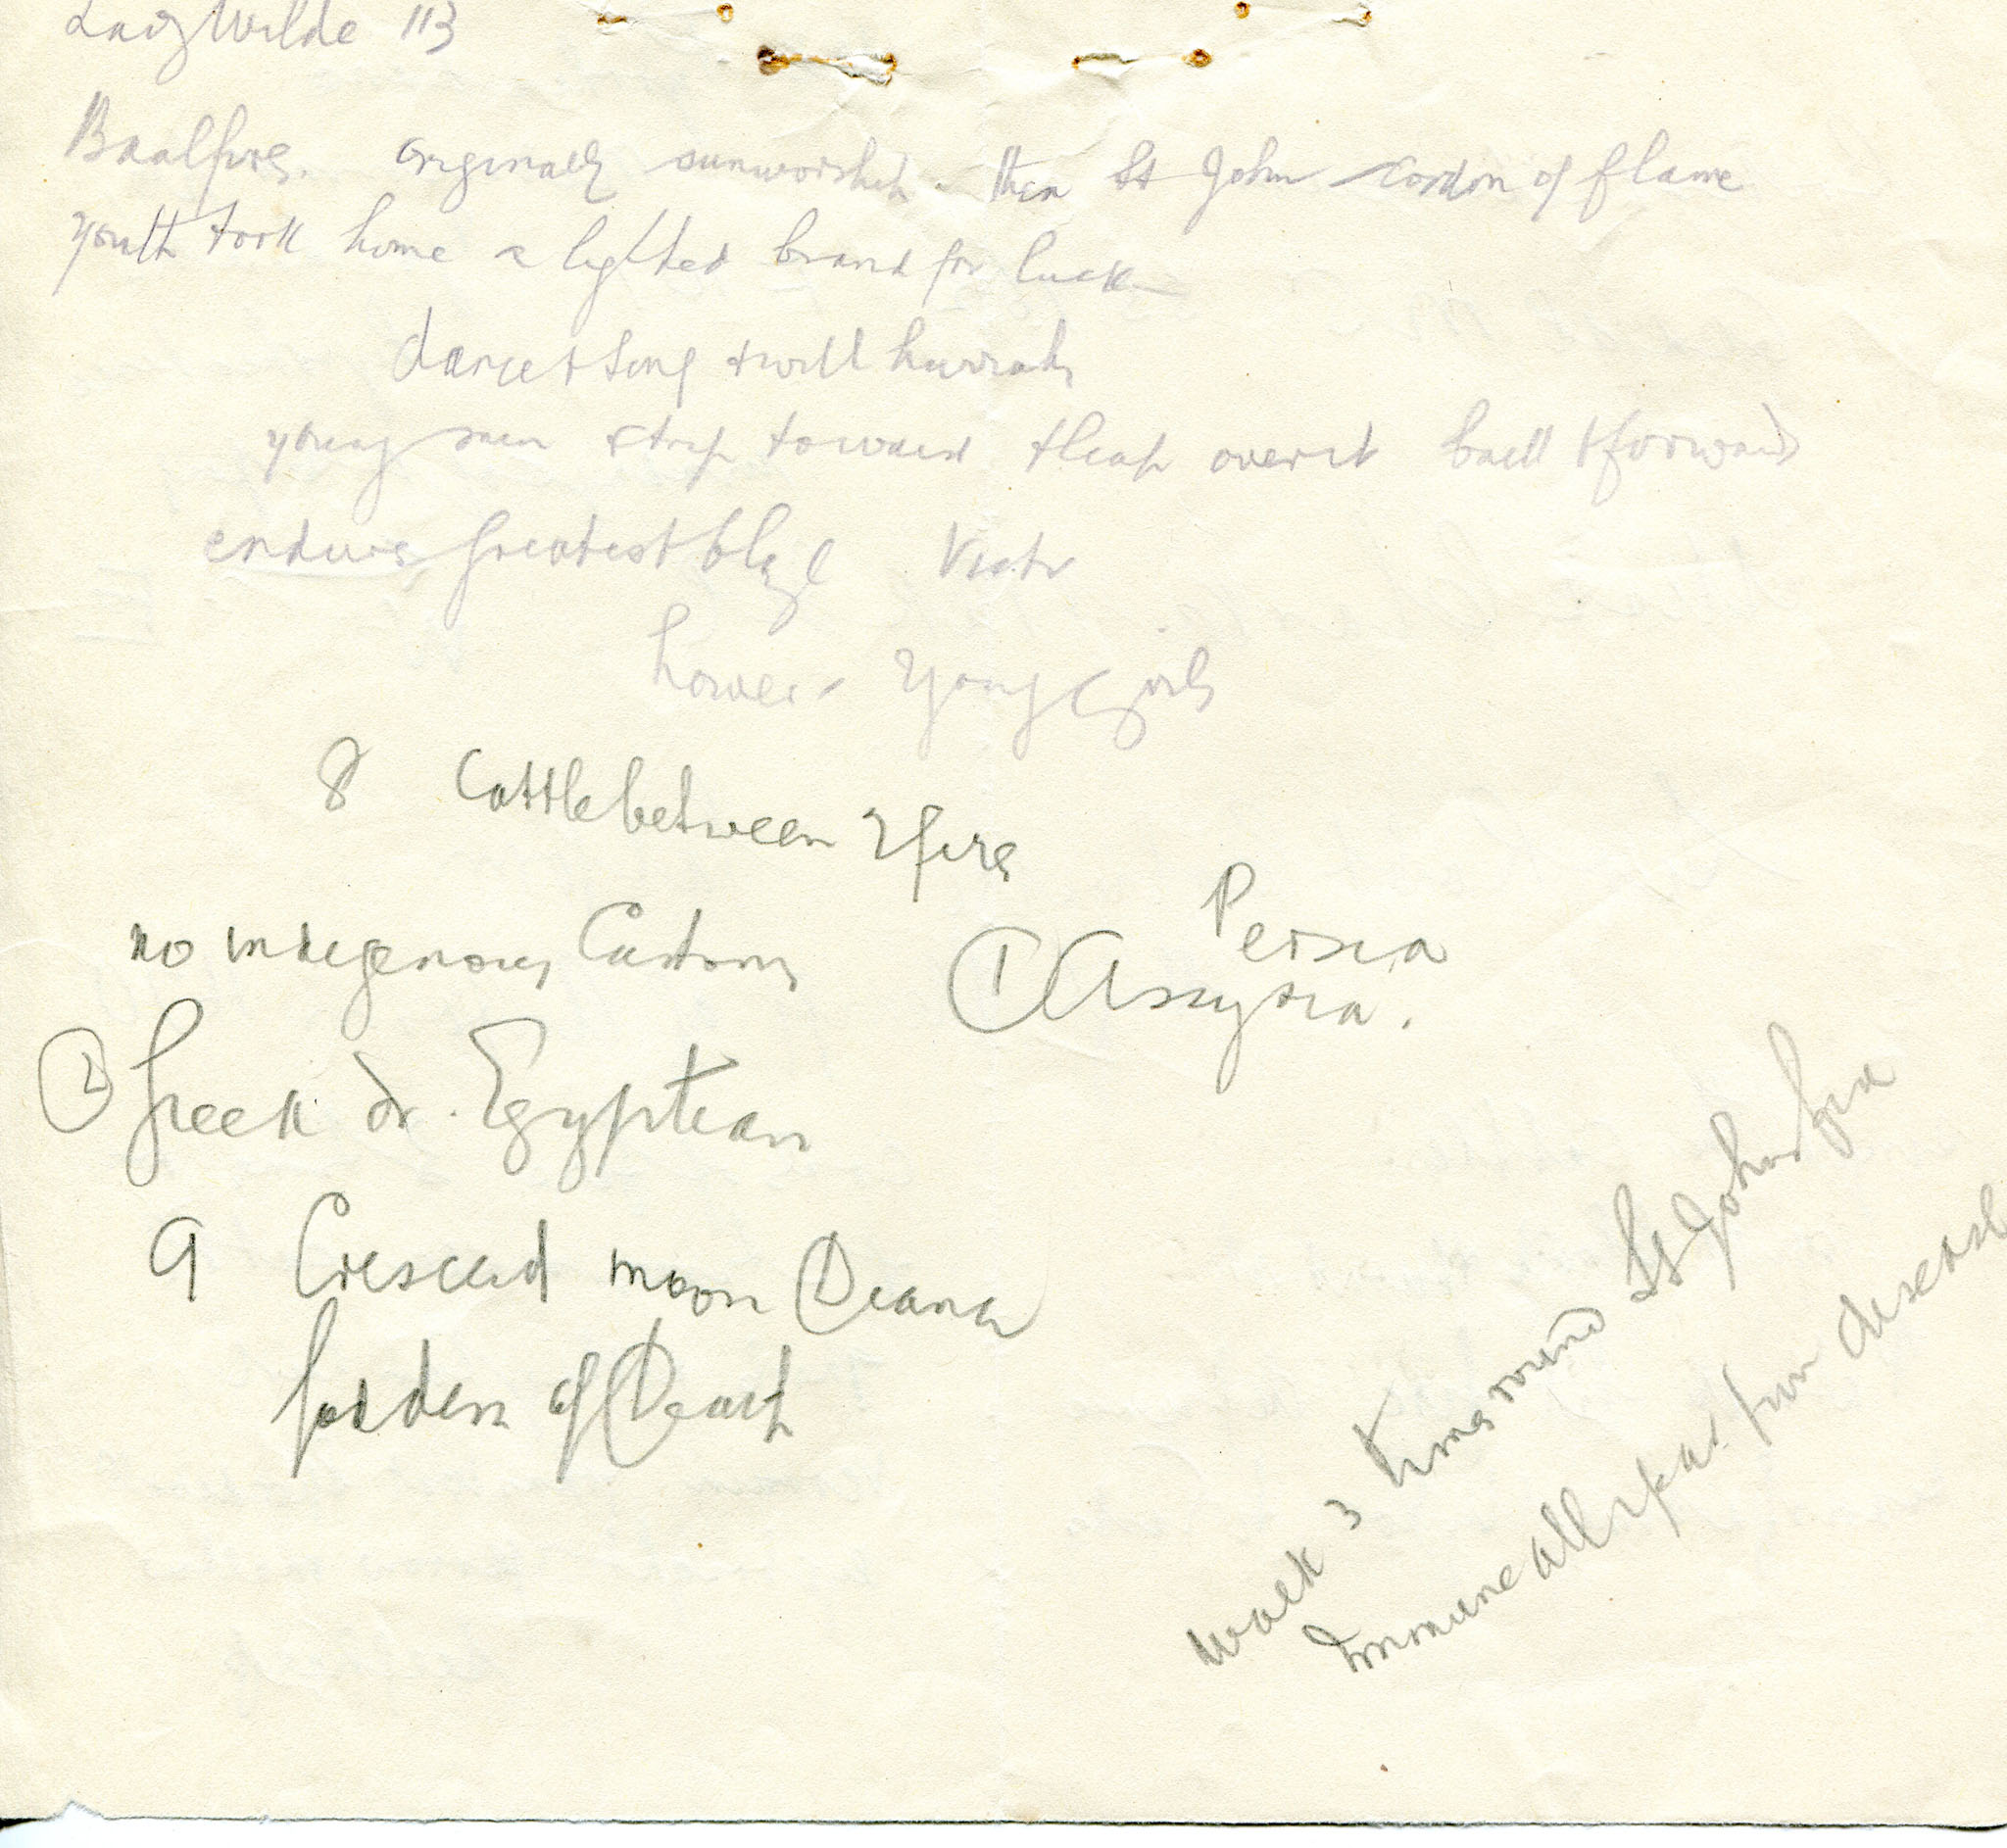 Lady Wilde 113
Baalfires. originally sunworship. then St John cordon of flame
youth took home a lighted brand for luck
dance + sing + wild hurrahs
young men strip to waist + leap over it back + forward
endure greatest blaze Victor
lower - young girls
8 Cattle between 2 fires
no indegenous Customs
Persia
① Assyria.
② Greek or. Egyptian
9 Crescent moon Diana
Goddess of Death
walk 3 times round St Johns fire
Immune all year from disease